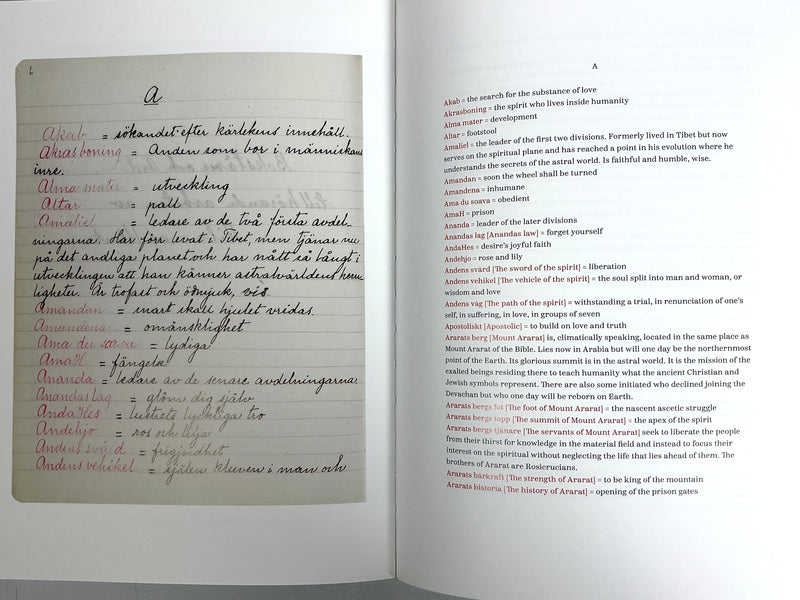 A
Akab = sökandet efter kärlekens innehåll.
Akrasboning = Anden som bor i människans
inre.
Alma mater = utveckling
Altar = pall
Amaliel = ledare av de två första avdel-
ningarna. Har förr levat i Tibet, men tjänar nu
på det andliga planet och har nått så långt i
utvecklingen att han känner astralvärldens hem-
ligheter. Är trofast och ödmjuk, vis.
Amandan = snart skall hjulet vridas.
Amandena = omänsklighet
Ama du soava = lydiga
AmaH = fängelse
Ananda = ledare av de senare avdelningarna
Anandas lag = glöm dig själv
AndaHes = lustrets lyckliga tro
Andehjo = ros och lilja
Andens svärd = frigjordhet
Andens vehikel = själen kluven i man och
A
Akab = the search for the substance of love
Akrasboning = the spirit who lives inside humanity
Alma mater = development
Altar = footstool
Amaliel = the leader of the first two divisions. Formerly lived in Tibet but now
serves on the spiritual plane and has reached a point in his evolution where he
understands the secrets of the astral world. Is faithful and humble, wise.
Amandan = soon the wheel shall be turned
Amandena = inhumane
Ama du soava = obedient
AmaH = prison
Ananda = leader of the later divisions
Anandas lag [Anandas law] = forget yourself
AndaHes = desire's joyful faith
Andehjo = rose and lily
Andens svärd [The sword of the spirit] = liberation
Andens vehikel [The vehicle of the spirit] = the soul split into man and woman, or
wisdom and love
Andens väg [The path of the spirit] = withstanding a trial, in renunciation of one's
self, in suffering, in love, in groups of seven
Apostoliskt [Apostolic] = to build on love and truth
Ararats berg [Mount Ararat] is, climatically speaking, located in the same place as
Mount Ararat of the Bible. Lies now in Arabia but will one day be the northernmost
point of the Earth. Its glorious summit is in the astral world. It is the mission of the
exalted beings residing there to teach humanity what the ancient Christian and
Jewish symbols represent. There are also some initiated who declined joining the
Devachan but who one day will be reborn on Earth.
Ararats bergs fot [The foot of Mount Ararat] = the nascent ascetic struggle
Ararats bergs topp [The summit of Mount Ararat] = the apex of the spirit
Ararats bergs tjänare [The servants of Mount Ararat] seek to liberate the people
from their thirst for knowledge in the material field and instead to focus their
interest on the spiritual without neglecting the life that lies ahead of them. The
brothers of Ararat are Rosicrucians.
Ararats bärkraft [The strength of Ararat] = to be king of the mountain
Ararats historia [The history of Ararat] = opening of the prison gates